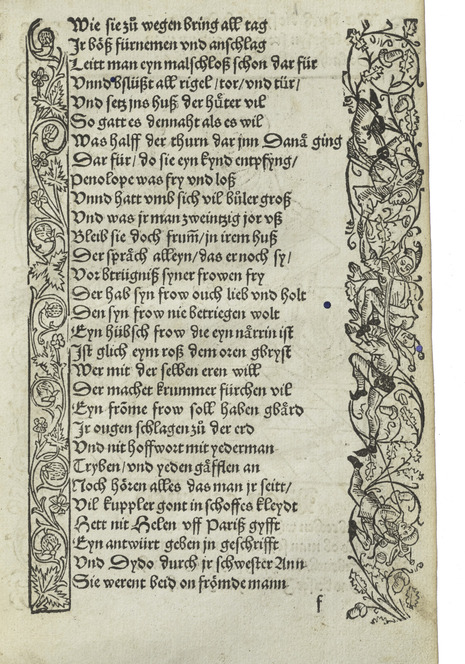 Wie sie zů wegen bring all tag
Jr bôß fürnemen vnd anschlag
Leitt man eyn malschloß schon dar für
Vnnd bslüßt all rigel / tor / vnd tür /
Vnd setz jns huß der hůter vil
So gatt es dennaht als es wil
Was halff der thurn dar jnn Danaͤ ging
Dar für / do sie eyn kynd entpfyng /
Penolope was fry vnd loß
Vnnd hatt vmb sich vil bůler groß
Vnd was jr man zweintzig jor vß
Bleib sie doch frum̃ / in irem huß
Der spraͤch alleyn / das er noch sy /
Vor btriügniß syner frowen fry
Der hab syn frow ouch lieb vnd holt
Den syn frow nie betriegen wolt
Eyn hübsch frow die eyn naͤrrin ist
Jst glich eym roß dem oren gbryst
Wer mit der selben eren will
Der machet krummer fürchen vil
Eyn frôme frow soll haben gbaͤrd
Jr ougen schlagen zů der erd
Vnd nit hoffwort mit yederman
Tryben / vnd yeden gaͤfflen an
Noch hôren alles das man jr seitt /
Vil kuppler gont in schoffes kleydt
Hett nit Helen vff Pariß gyfft
Eyn antwürt geben jn geschrifft
Vnd Dydo durch jr schwester Ann
Sie werent beid on frômde mann
f